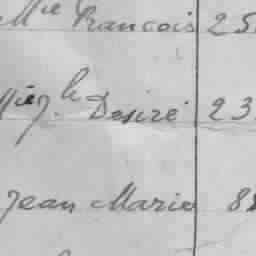 Mie Francois 25
h Desiré 23
Jean Marie 8